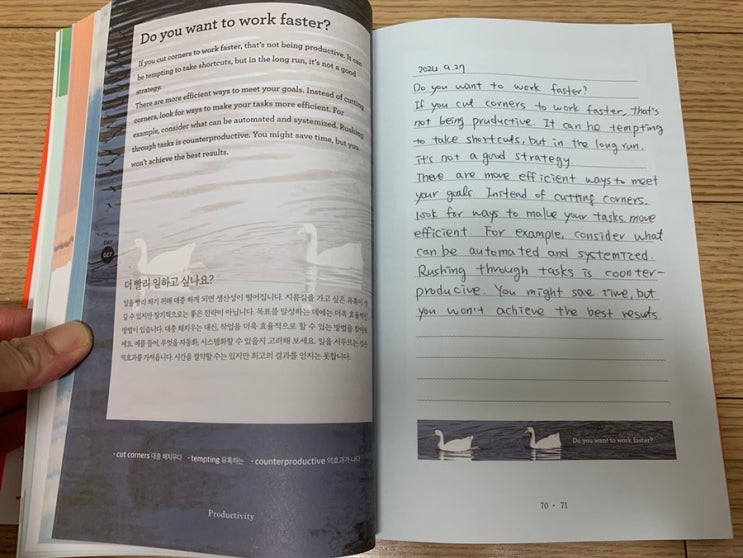 Do you want to work faster?
If you cut corners to work faster, that's not being productive. It can
be tempting to take shortcuts, but in the long run, it's not a good
strategy.
There are more efficient ways to meet your goals. Instead of cutting
corners, look for ways to make your tasks more efficient. For
example, consider what can be automated and systemized. Rushing
through tasks is counterproductive. You might save time, but you
won't achieve the best results.
DAY
027
더 빨리 일하고 싶나요?
일을 빨리 하기 위해 대충 하게 되면 생산성이 떨어집니다. 지름길을 가고 싶은 유혹이 생
길 수 있지만 장기적으로는 좋은 전략이 아닙니다. 목표를 달성하는 데에는 더욱 효율적인
방법이 있습니다. 대충 해치우는 대신, 작업을 더욱 효율적으로 할 수 있는 방법을 찾아보
세요. 예를 들어, 무엇을 자동화, 시스템화할 수 있을지 고려해 보세요. 일을 서두르는 것은
역효과를 가져옵니다. 시간을 절약할 수는 있지만 최고의 결과를 얻지는 못합니다.
• cut corners 대충 해치우다 • tempting 유혹하는 • counterproductive 역효과가 나다
Productivity
2024 9.27
Do you want to work faster?
If you cut corners to work faster, that's
not being pruductive. It can be tempting
to take shortcuts, but in the long run.
it's not a good strategy.
There are more efficient ways to meet
your goals Instead of cutting corners.
look for ways to make your tasks more
efficient. For example, consider what
can be automated and systemized.
Rushing through tasks is coonter-
producive. You might save time, but
you won't achieve the best results.
Do you want to work faster?
70 • 71